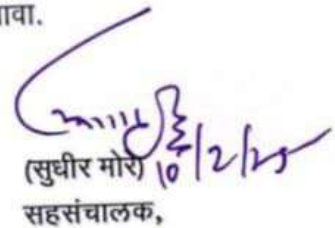 ावा.
10/2/25
(सुधीर मोरे)
सहसंचालक,